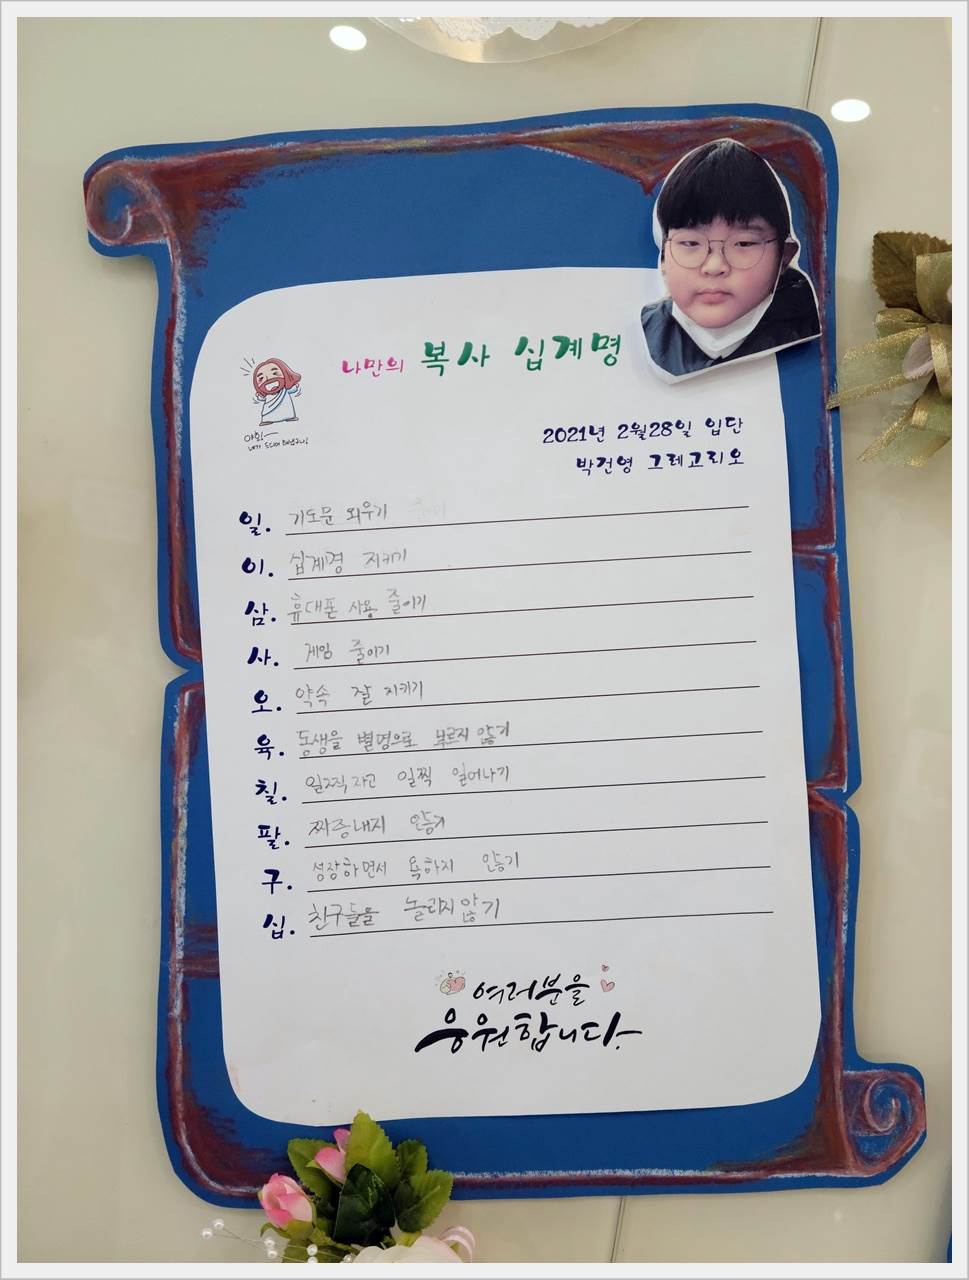 나만의 복사 십계명
야호!
내가 드디어 해냈구나!
2021년 2월28일 입단
박건영 그레고리오
일. 기도문 외우기
이. 십계명 지키기
삼. 휴대폰 사용 줄이기
사. 게임 줄이기
오. 약속 잘 지키기
육. 동생을 별명으로 부르지 않기
칠. 일찍 자고 일찍 일어나기
팔. 짜증내지 않기
구. 성장하면서 욕하지 않기
십. 친구들을 놀리지 않기
여러분을
응원합니다.